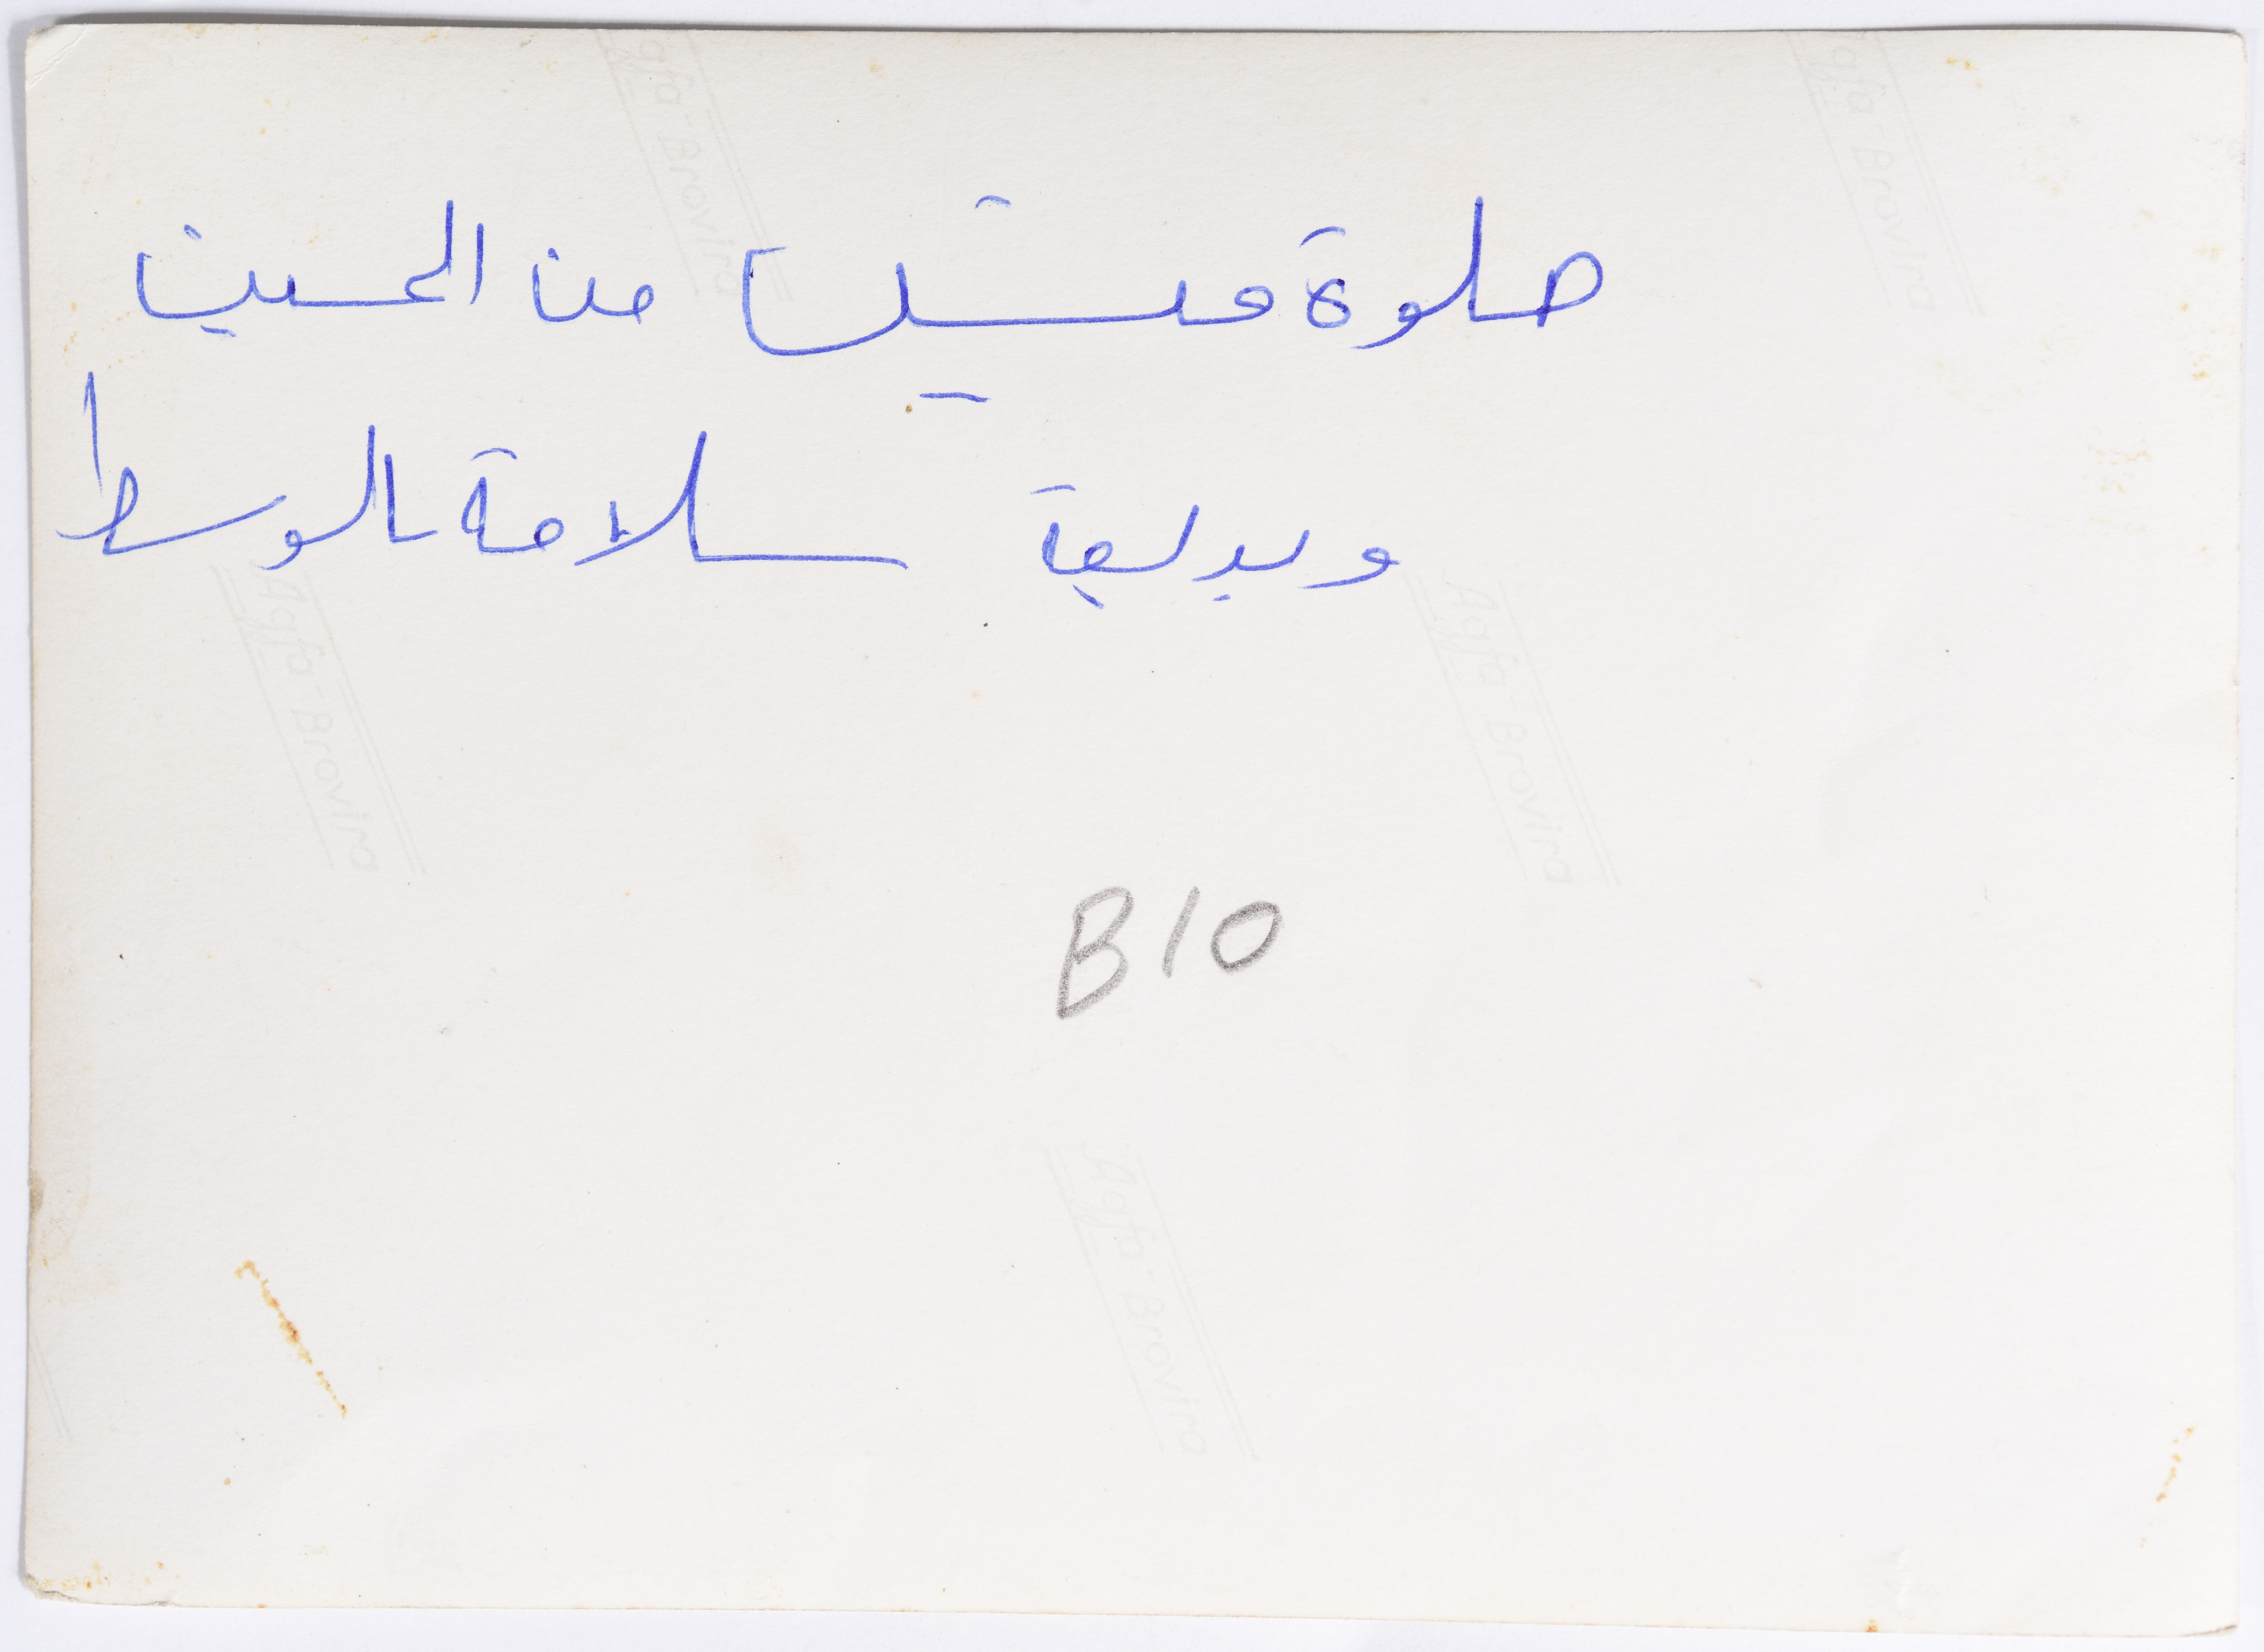 صلوة من الحسين
وبديعة سلامة بالوسط
B10
Agfa-Brovira
Agfa-Brovira
Agfa-Brovira
Agfa-Brovira
Agfa-Brovira